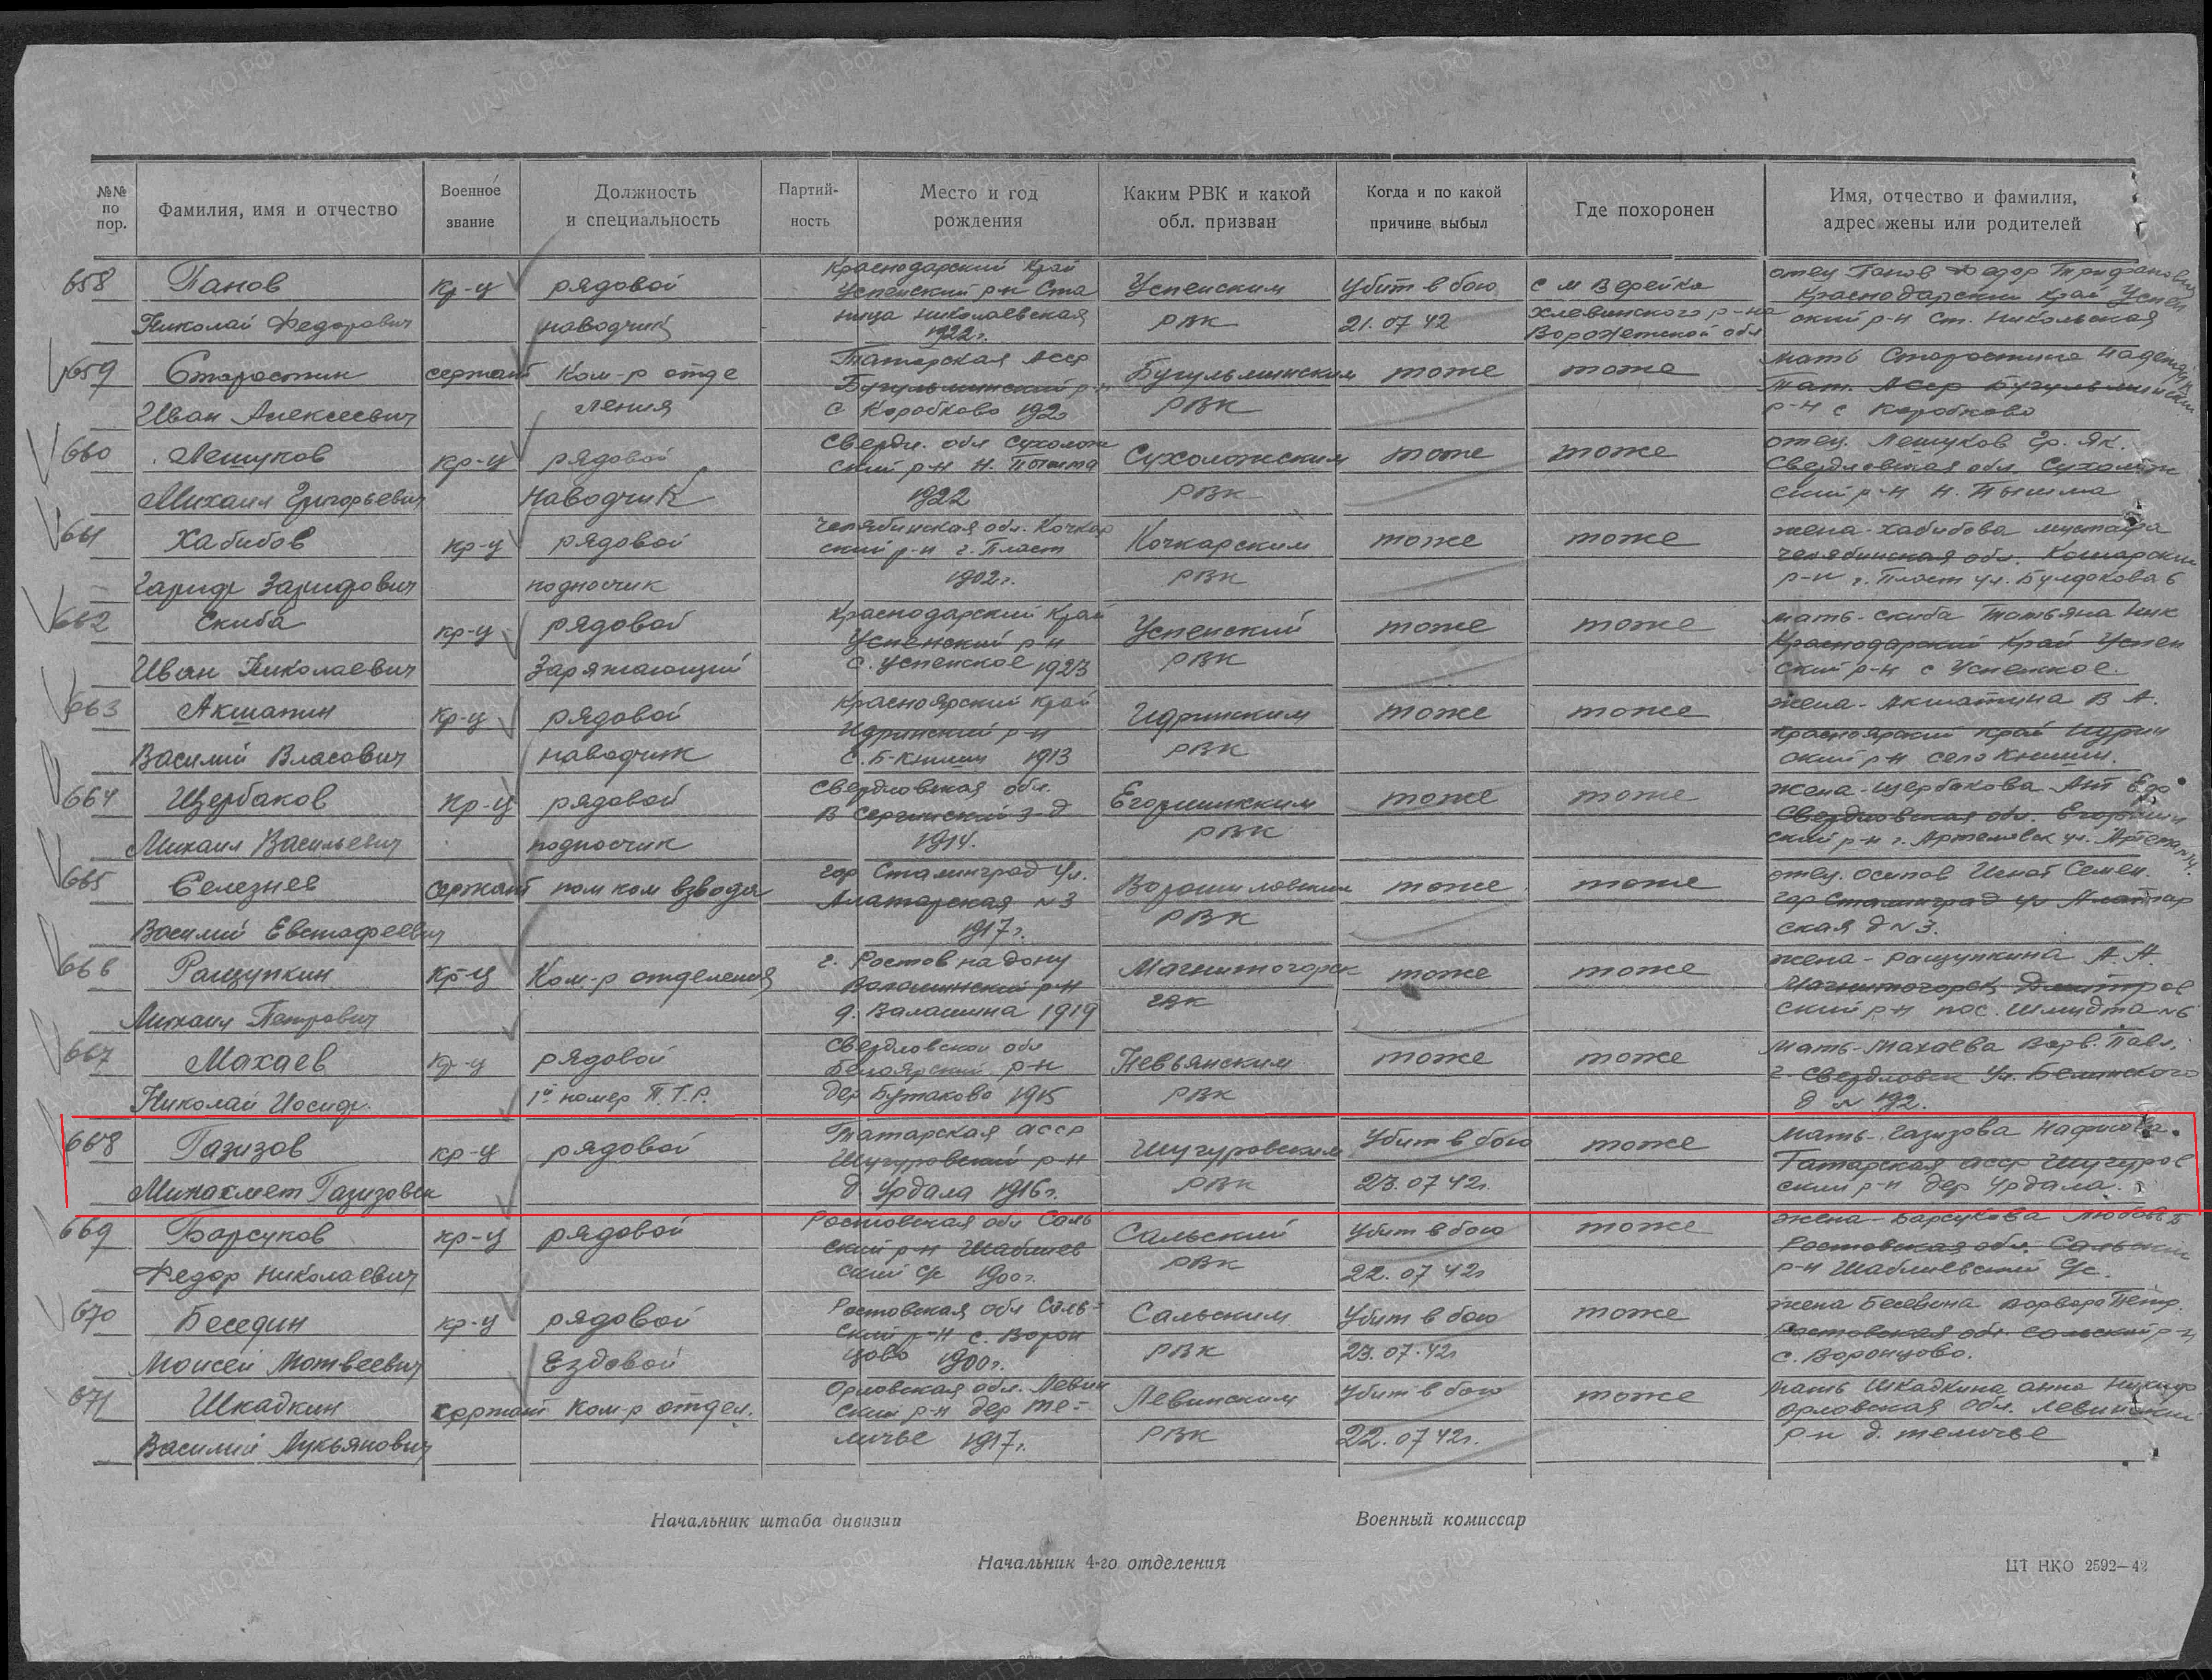 №№ по пор.
Фамилия, имя и отчество
Военное звание
Должность и специальность
Партий- ность
Место и год рождения
Каким РВК и какой обл. призван
Когда и по какой причине выбыл
Где похоронен
Имя, отчество и фамилия, адрес жены или родителей
658 Панов кр-ц рядовой Краснодарский край Успенский р-н Ста Успенским Убит в бою с м Верейка отец Панов Федор
Николай Федорович наводчик ница Николаевская 1922г. РВК 21.07 42 Хлевинского р-на Воронежской обл Краснодарский край Успен ский р-н ст. Никольская
659 Старостин сержант Ком-р отде Татарская АССР Бугульминский р-н Бугульминским тоже тоже мать Старостина
Иван Алексеевич ления с Коробково РВК Тат. АССР Бугульминским р-н с Коробково
660 Лешуков кр-ц рядовой Свердл. обл Сухолож ский р-н Н. Пышма Сухоложским тоже тоже отец. Лешуков Гр. Як.
Михаил Григорьевич наводчик 1922 РВК Свердловская обл. Сухолож ский р-н Н. Пышма
661 Хабибов кр-ц рядовой Челябинская обл. Кочкар ский р-н г. Пласт Кочкарским тоже тоже жена-Хабибова
Гариф Зарифович подносчик 1902г. РВК Челябинская обл. р-н г. Пласт ул. 6
662 Скиба кр-ц рядовой Краснодарский край Успенский р-н Успенский тоже тоже мать-Скиба Татьяна Ник
Иван Николаевич Заряжающий с. Успенское 1923 РВК Краснодарский край Успен ский р-н с Успенское.
663 Акшатин кр-ц рядовой Красноярский край Идринский р-н Идринским тоже тоже жена-Акшатина В А.
Василий Власович наводчик 1913 РВК Красноярский край Идрин ский р-н село
664 Щербаков кр-ц рядовой Свердловская обл. В Сергинский з-д Егоршинским тоже тоже жена-Щербакова Ант
Михаил Васильевич подносчик 1914. РВК Свердловская обл. Егоршин ский р-н г.
665 Селезнев сержант пом ком взвода гор Сталинград ул. Алатарская №3 Ворошиловским тоже тоже отец. Осипов Игнат Семен.
Василий Евстафеевич 1917г. РВК гор Сталинград ул Алатар ская д №3.
666 Ращупкин кр-ц Ком-р отделения г. Ростов на дону Магнитогорск тоже тоже жена-Ращупкина А.
Михаил Петрович д. Валашина 1919 Магнитогорск ский р-н пос. Шмидта №6
667 Махаев кр-ц рядовой Свердловской обл Белоярский р-н Невьянским тоже тоже мать-Махаева Варв. Павл.
Николай Иосиф. 1й номер П.Т.Р. дер Бутаково 1915 РВК г. Свердловск ул. Белинского д № 192.
668 Газизов кр-ц рядовой Татарская АССР Шугуровский р-н Шугуровским Убит в бою тоже мать-Газизова
Минахмет Газизович д. Урдала 1916г. РВК 23.07 42г. Татарская АССР Шугуров ский р-н дер Урдала.
669 Барсуков кр-ц рядовой Ростовская обл Саль ский р-н Шаблиев Сальский Убит в бою тоже жена-Барсукова
Федор Николаевич ский с/с 1900г. РВК 22.07 42г Ростовская обл. Сальский р-н Шаблиевский с/с.
670 Беседин кр-ц рядовой Ростовская обл Саль- ский р-н с. Ворон Сальским Убит в бою тоже жена
Моисей Матвеевич Ездовой цово 1900г. РВК 23.07.42г Ростовская обл. Сальский р-н с. Воронцово.
671 Шкадкин сержант Ком-р отдел. Орловская обл. Левин ский р-н дер Те- Левинским Убит в бою тоже мать Шкадкина Анна
Василий Лукьянович личье 1917г. РВК 22.07 42г. Орловская обл. Левинский р-н д. Теличье
Начальник штаба дивизии
Военный комиссар
Начальник 4-го отделения
ЦТ НКО 2592—42